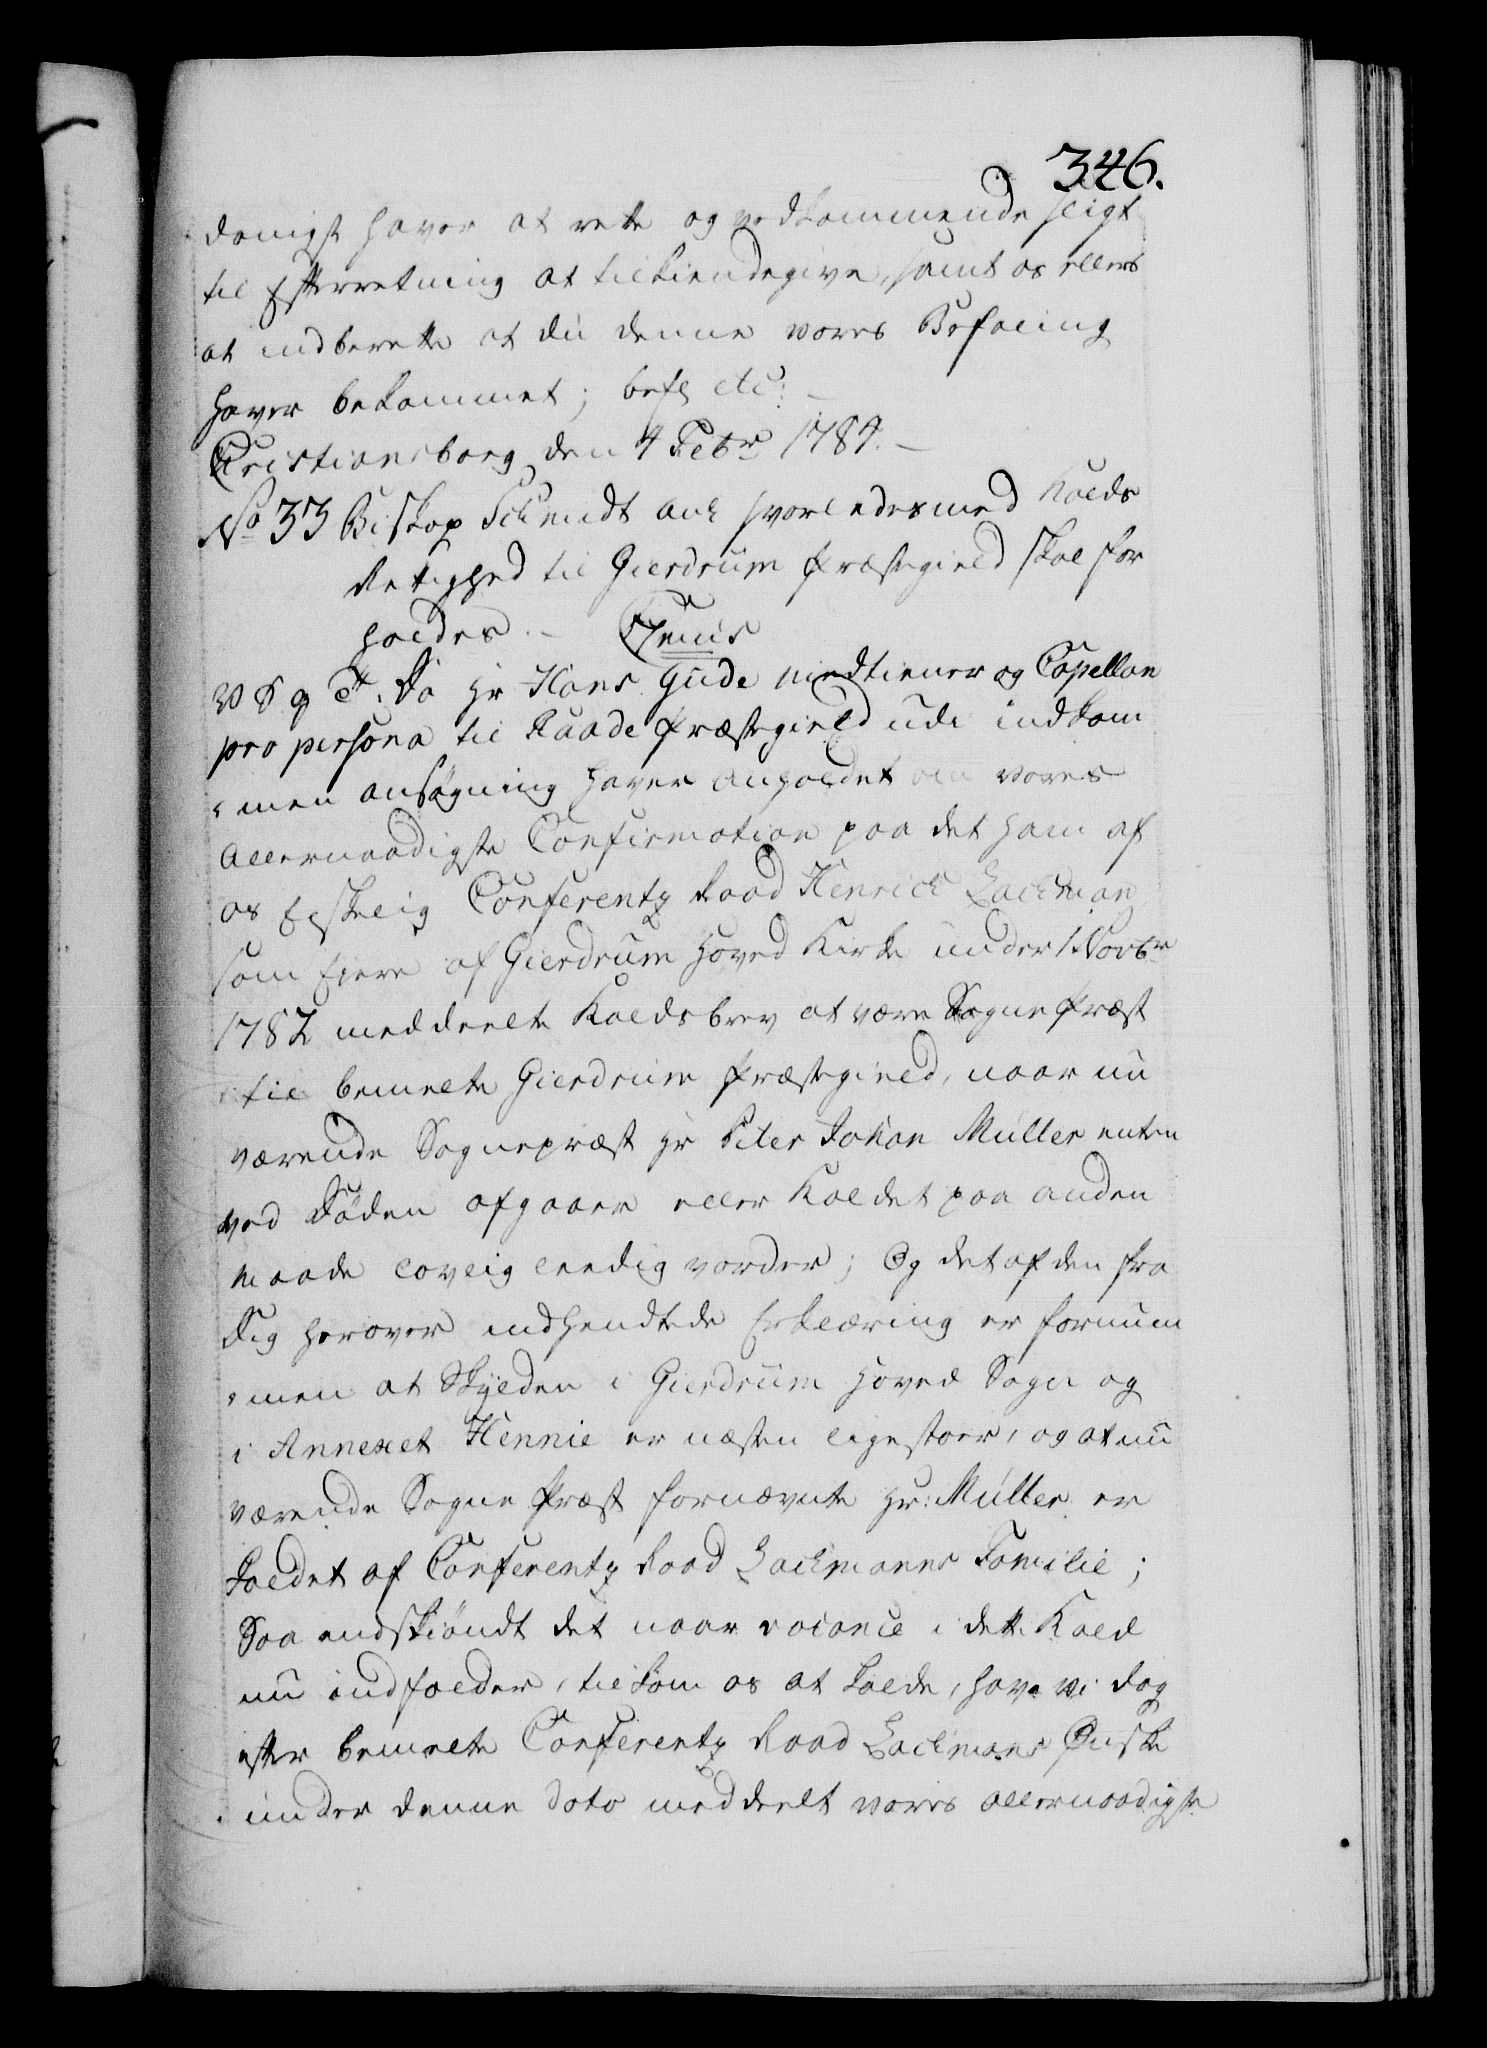 346.
danigst haver at rette og vedkommende sligt
til Efterretning at tilkiendegive, samt os ellers
at indberette at du denne vores Befaling
haver bekommet; befl etc:
Christiansborg den 4 Febr 1784.
No 33 Biskop Schmidt ank hvorledes med Kalds
Rettighed til Gierdrum Præstegield skal for
holdes. Clemis
V S G T. Da Hr Hans Gude Medtiener og Capellan
pro persona til Raade Præstegield udi indkom
=men ansøgning haver anholdet om vores
Allernaadigste Confirmation paa det ham af
os Elskelig Conferentz Raad Henrich Lachman
som Eiere af Gierdrum Hoved Kirke under 1 Novbr
1782 meddeelte Kaldsbrev at være Sogne Præst
til bemelte Gierdrum Præstegield, naar nu
værende Sognepræst Hr Peter Johan Müller enten
ved Døden afgaaer eller Kaldet paa anden
Maade lovlig leedig vorder; Og det af den fra
Dig herover indhendtede Erklæring er fornum
=men at Skylden i Gierdrum Hoved Sogn og
i Annexet Hennie er næsten ligestoer, og at nu
værende Sogne Præst fornævnte Hr: Müller er
kaldet af Conferentz Raad Lachmanns Familie;
Saa endskiøndt det naar vacance i dette Kald
nu indfalder, tilkom os at kalde, have vi dog
efter bemelte Conferentz Raad Lachmans Ønske
under denne dato meddeelt vores allernaadigste